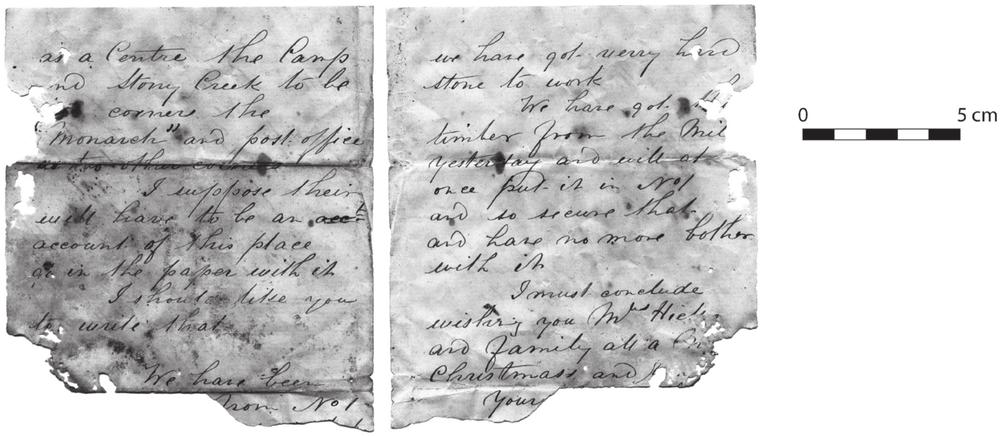 as a Centre the Camp
and Stony Creek to be
corners the
Monarch" and post office
as two other corners
I suppose their
will have to be an acct
account of this place
go in the paper with it
I should like you
to write that
We have been
from No 1
we have got verry hard
stone to work
We have got
timber from the Mil
yesterday and will at
once put it in No 1
and so secure that
and have no more bother
with it
I must conclude
wishing you Mrs
and family all a
Christmass and
Your
0 5 cm